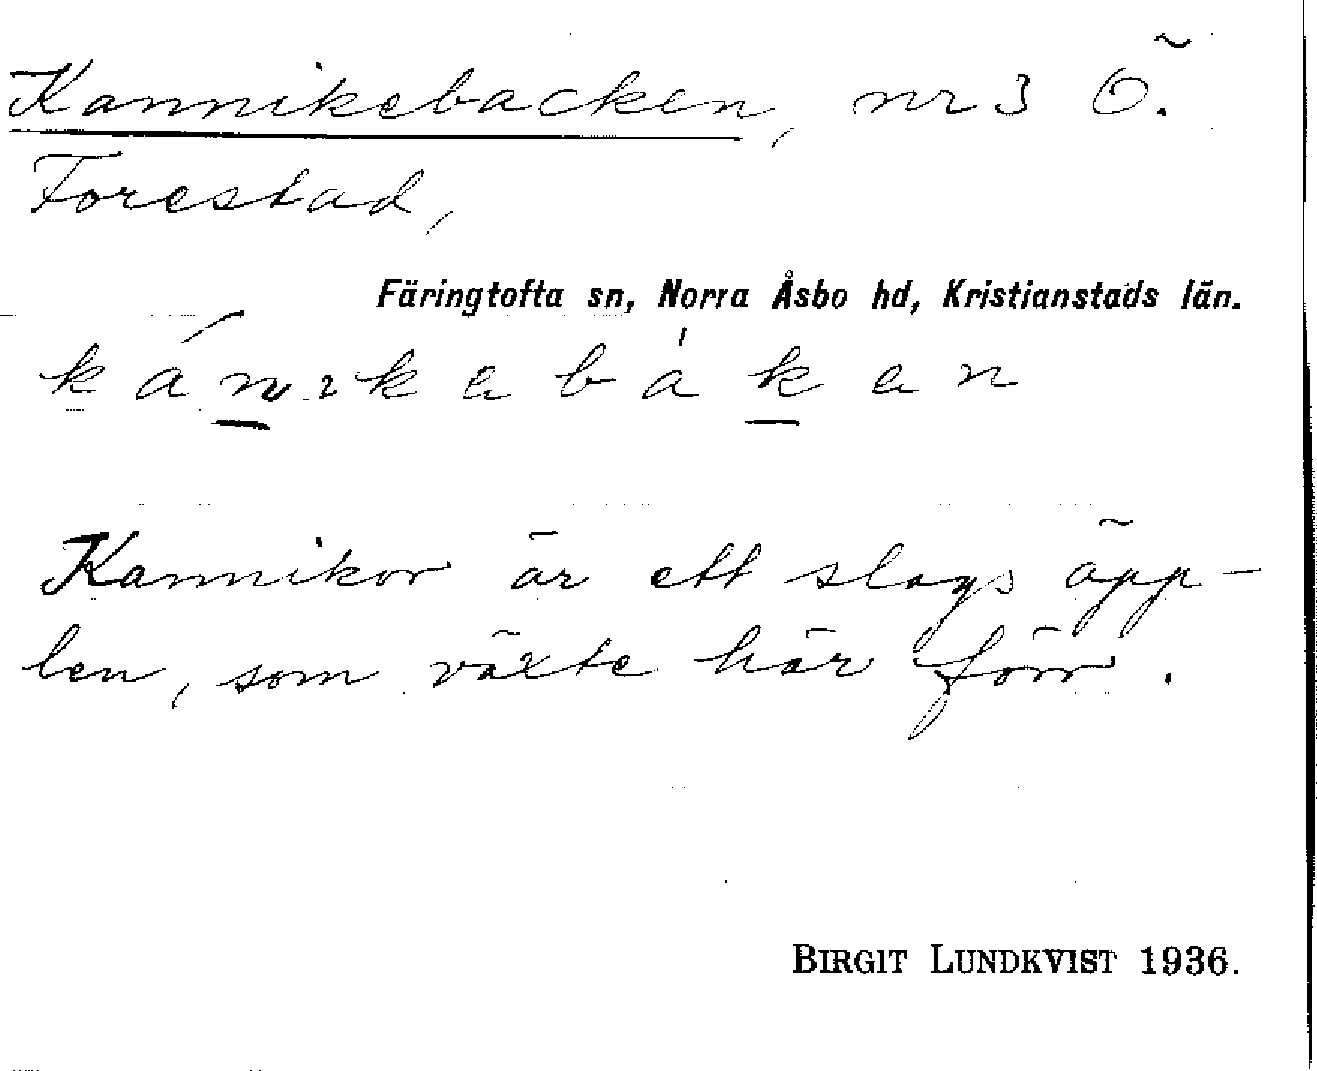 Kannikebacken, nr 3 Ö.
Forestad,
Färingtofta sn, Norra Åsbo hd, Kristianstads län.
Kannikor är ett slags äpp-
len, som växte här förr.
BIRGIT LUNDKVIST 1936.